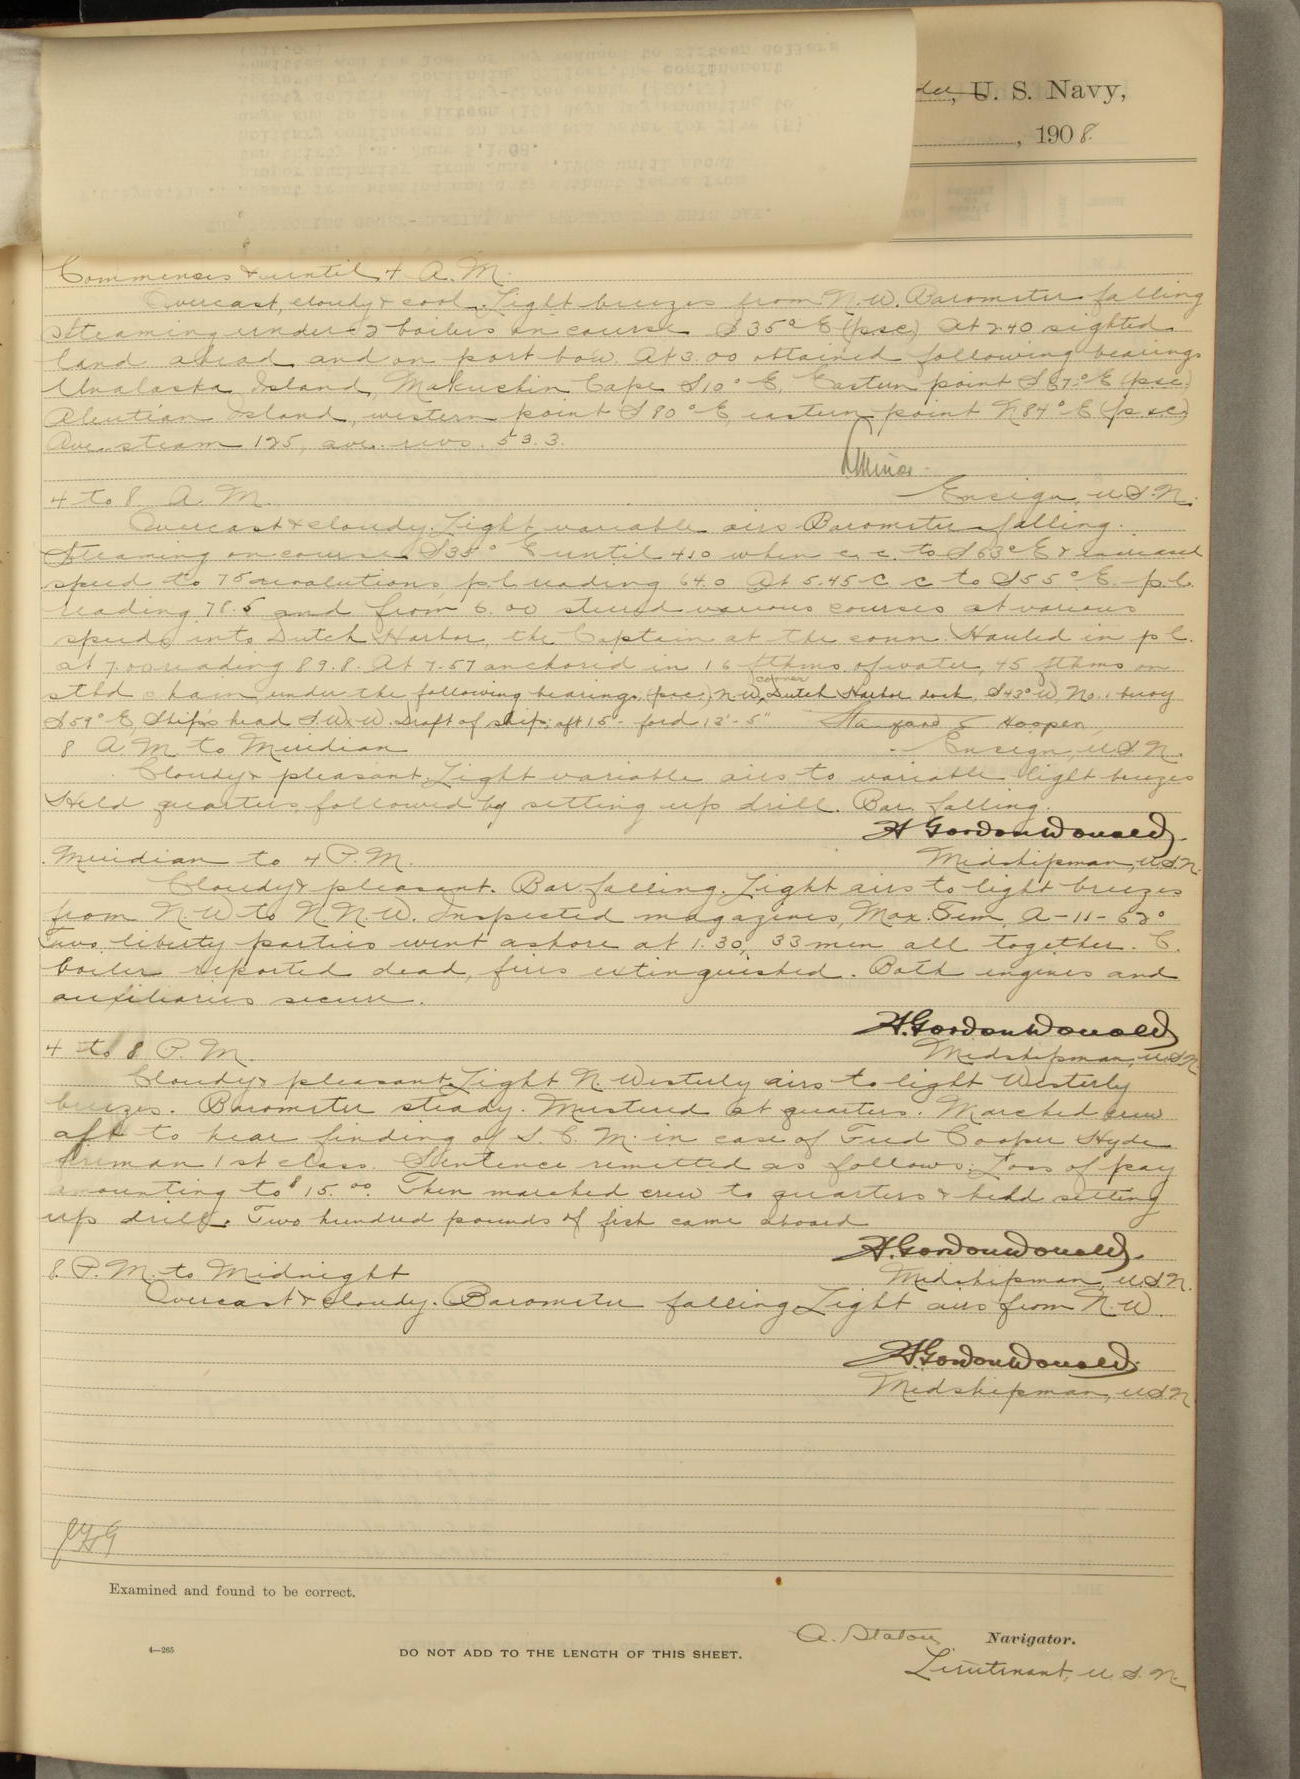 U. S. Navy,
, 1908.
Commences & until 4 A.M.
Overcast, cloudy & cool. Light breezes from N.W. Barometer falling
Steaming under 2 boilers on course S 35° E (psc) At 2.40 sighted
land ahead and on port bow. At 3.00 obtained following bearings
Unalaska Island, Makuchin Cape S 10° E, Eastern point S 87° E (psc)
Aleutian Island, western point S 80° E, eastern point N 84° E (psc)
Ave. steam 125, ave. revs. 53.3.
Ensign, U.S.N.
4 to 8 A.M.
Overcast & cloudy. Light variable airs Barometer falling.
Steaming on course S 35° E until 4.10 when c. c. to S 63° E & increased
speed to 75 revolutions, p.l. reading 64.0 At 5.45 c. c to S 55° E. p.l.
reading 78.5 and from 6.00 steered various courses at various
speeds into Dutch Harbor, the Captain at the conn. Hauled in p l.
at 7.00 reading 89.8. At 7.57 anchored in 16 fthms of water, 45 fthms on
corner
stbd chain under the following bearings, (psc.) N W. Dutch Harbor dock, S 43° W, No. 1 buoy
S 59° E, Ship's head S.W. W. Draft of ship; aft 15- ford 13'-5" Stanford Hooper,
8 A M to Meridian
Ensign, U.S.N.
Cloudy & pleasant. Light variable airs to variable light breezes
Held quarters followed by setting up drill. Bar. falling.
H Gordon Donald,
Meridian to 4 P.M. Midshipman, U.S.N.
Cloudy & pleasant. Bar. falling. Light airs to light breezes
from N.W to N.N.W. Inspected magazines, Max. Tem. A-11-62°
Two liberty parties went ashore at 1.30, 33 men all together. C.
boiler reported dead, fires extinguished. Both engines and
auxiliaries secure.
H. Gordon Donald
4 to 8 P.M. Midshipman, U.S.N
Cloudy & pleasant. Light N. Westerly airs to light Westerly
breezes. Barometer steady. Mustered at quarters. Marched crew
aft to hear finding of S. C. M. in case of Fred Cooper Hyde
fireman 1st class. Sentence remitted as follows: Loss of pay
amounting to $15.00. Then marched crew to quarters & held setting
up drill. Two hundred pounds of fish came aboard
H. Gordon Donald.
8 P.M. to Midnight Midshipman, U.S.N.
Overcast & cloudy. Barometer falling Light airs from N.W.
H. Gordon Donald.
Midshipman, U.S.N
Examined and found to be correct.
A. Staton, Navigator.
4—265
DO NOT ADD TO THE LENGTH OF THIS SHEET.
Lieutenant, U.S.N.